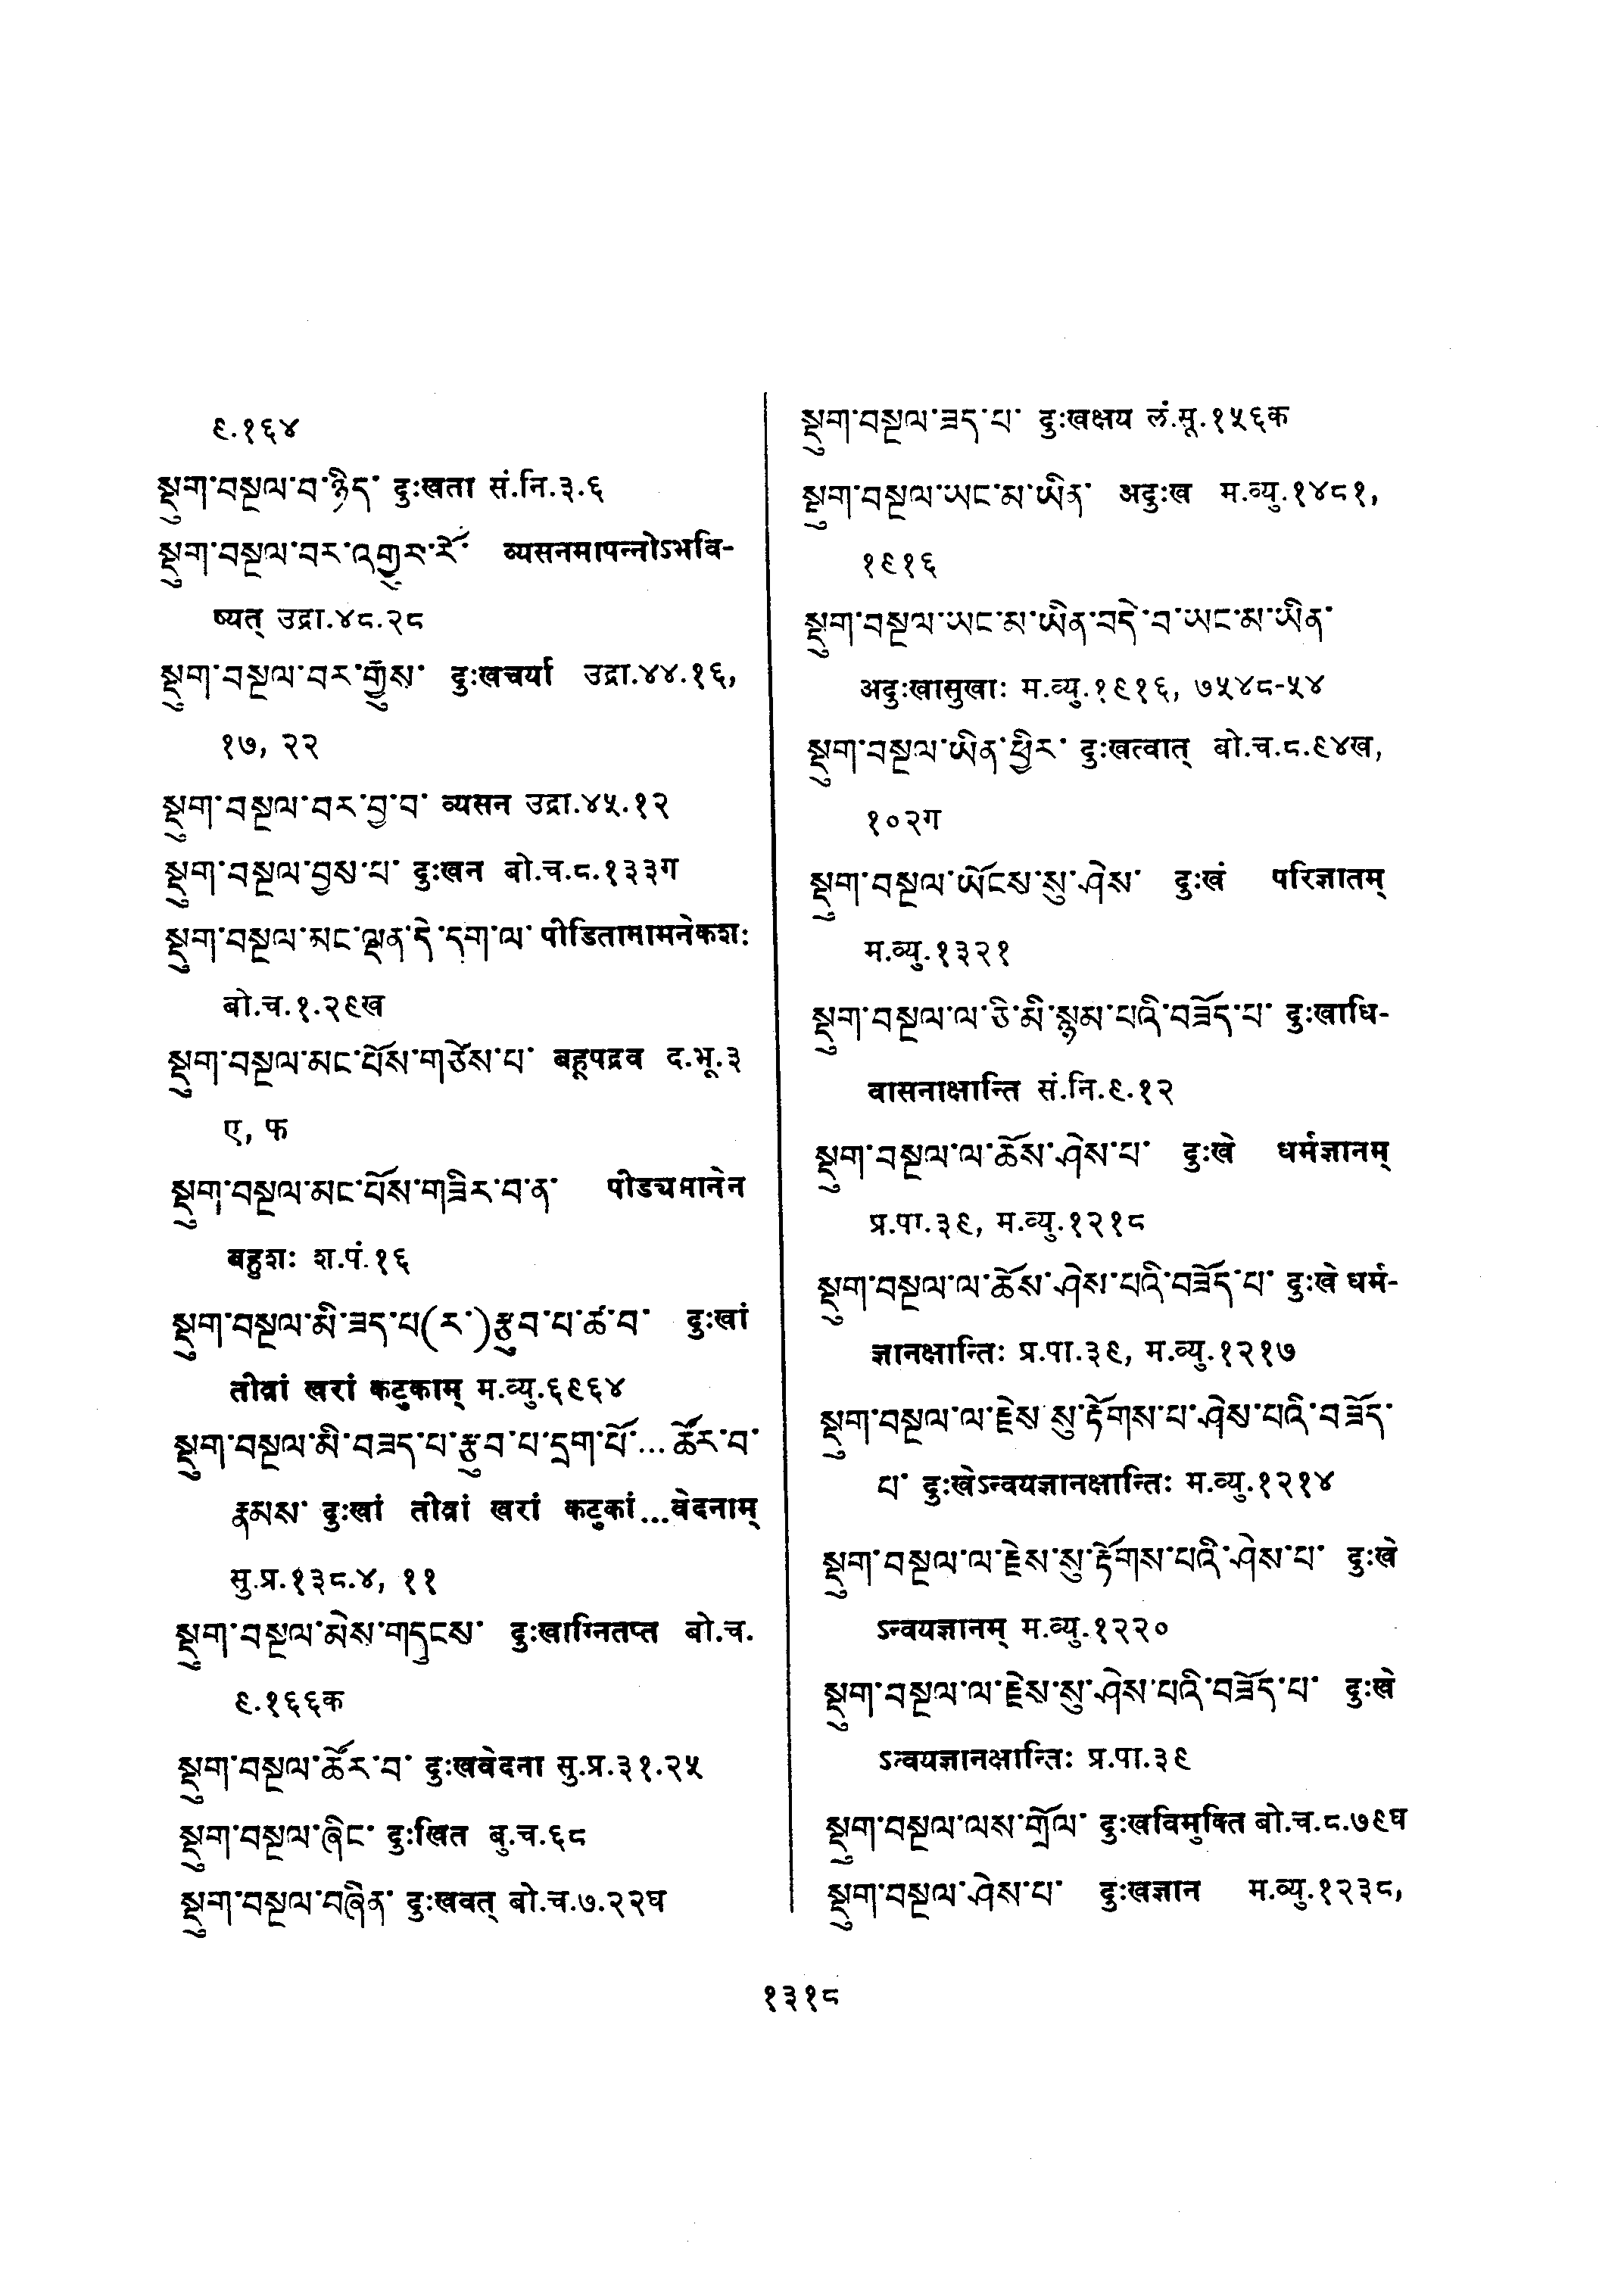 ९.१६४
སྡུག་བསྔལ་བ་ཉིད་ दुःखता सं.नि.३.६
སྡུག་བསྔལ་བར་འགྱུར་རོ་ व्यसनमापन्नोऽभवि-
ष्यत् उद्रा.४८.२८
སྡུག་བསྔལ་བར་གྱུས་ दुःखचर्या उद्रा.४४.१६,
१७, २२
སྡུག་བསྔལ་བར་བྱ་བ་ व्यसन उद्रा.४५.१२
སྡུག་བསྔལ་བྱས་པ་ दुःखन बो.च.८.१३३ग
སྡུག་བསྔལ་མང་ལྡན་དེ་དག་ལ་ पीडितामामनेकशः
बो.च.१.२९ख
སྡུག་བསྔལ་མང་པོས་གཙེས་པ་ बहूपद्रव द.भू.३
ए, फ
སྡུག་བསྔལ་མང་པོས་གཟིར་བ་ན་ पीड्यमानेन
बहुशः श.पं.१६
སྡུག་བསྔལ་མི་ཟད་པ(ར་)རྩུབ་པ་ཚ་བ་ दुःखां
तीव्रां खरां कटुकाम् म.व्यु.६९६४
སྡུག་བསྔལ་མི་བཟད་པ་རྩུབ་པ་དྲག་པོ་...ཚོར་བ་
རྣམས་ दुःखां तीव्रां खरां कटुकां...वेदनाम्
सु.प्र.१३८.४, ११
སྡུག་བསྔལ་མེས་གདུངས་ दुःखाग्नितप्त बो.च.
९.१६६क
སྡུག་བསྔལ་ཚོར་བ་ दुःखवेदना सु.प्र.३१.२५
སྡུག་བསྔལ་ཞིང་ दुःखित बु.च.६८
སྡུག་བསྔལ་བཞིན་ दुःखवत् बो.च.७.२२घ
སྡུག་བསྔལ་ཟད་པ་ दुःखक्षय लं.सू.१५६क
སྡུག་བསྔལ་ཡང་མ་ཡིན་ अदुःख म.व्यु.१४८१,
१९१६
སྡུག་བསྔལ་ཡང་མ་ཡིན་བདེ་བ་ཡང་མ་ཡིན་
अदुःखासुखाः म.व्यु.१९१६, ७५४८-५४
སྡུག་བསྔལ་ཡིན་ཕྱིར་ दुःखत्वात् बो.च.८.९४ख,
१०२ग
སྡུག་བསྔལ་ཡོངས་སུ་ཤེས་ दुःखं परिज्ञातम्
म.व्यु.१३२१
སྡུག་བསྔལ་ལ་ཅི་མི་སྙམ་པའི་བཟོད་པ་ दुःखाधि-
वासनाक्षान्ति सं.नि.९.१२
སྡུག་བསྔལ་ལ་ཆོས་ཤེས་པ་ दुःखे धर्मज्ञानम्
प्र.पा.३९, म.व्यु.१२१८
སྡུག་བསྔལ་ལ་ཆོས་ཤེས་པའི་བཟོད་པ་ दुःखे धर्म-
ज्ञानक्षान्तिः प्र.पा.३९, म.व्यु.१२१७
སྡུག་བསྔལ་ལ་རྗེས་སུ་རྟོགས་པ་ཤེས་པའི་བཟོད་
པ་ दुःखेऽन्वयज्ञानक्षान्तिः म.व्यु.१२१४
སྡུག་བསྔལ་ལ་རྗེས་སུ་རྟོགས་པའི་ཤེས་པ་ दुःखे
ऽन्वयज्ञानम् म.व्यु.१२२०
སྡུག་བསྔལ་ལ་རྗེས་སུ་ཤེས་པའི་བཟོད་པ་ दुःखे
ऽन्वयज्ञानक्षान्तिः प्र.पा.३९
སྡུག་བསྔལ་ལས་གྲོལ་ दुःखविमुक्ति बो.च.८.७९घ
སྡུག་བསྔལ་ཤེས་པ་ दुःखज्ञान म.व्यु.१२३८,
१३१८